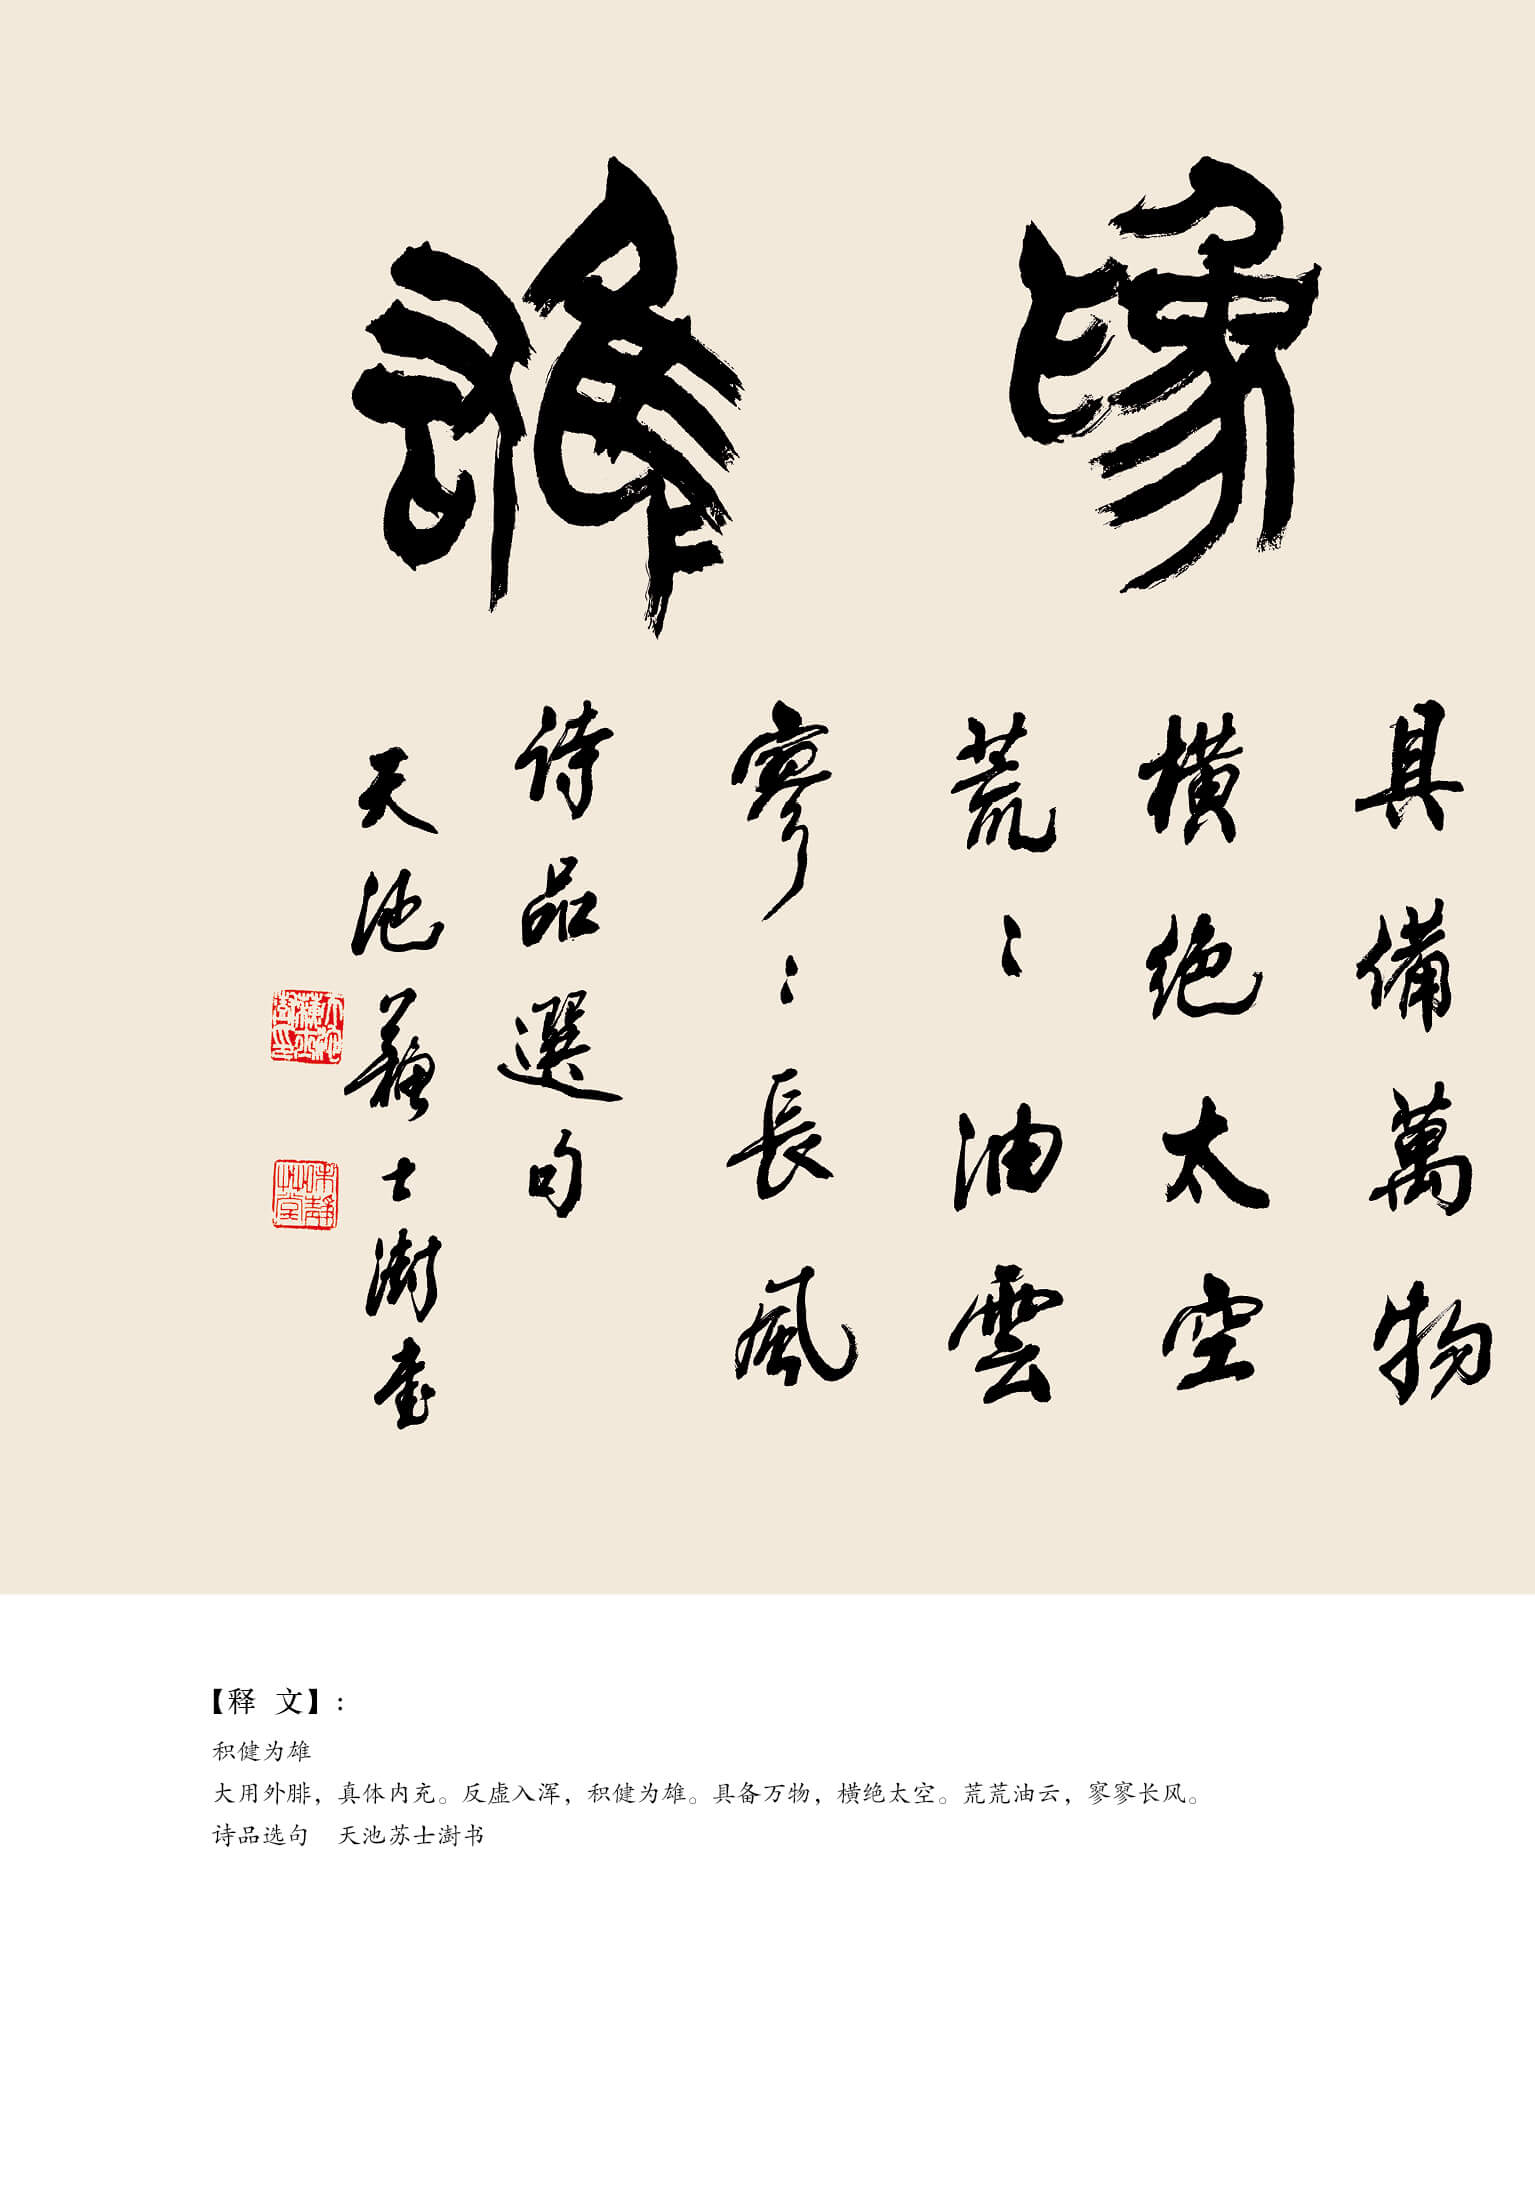 為雄
具備萬物
橫绝太空
荒〻油雲
寥〻長風
诗品選句
天池蘇士澍書
【释 文】：
积健为雄
大用外腓，真体内充。反虚入浑，积健为雄。具备万物，横绝太空。荒荒油云，寥寥长风。
诗品选句 天池苏士澍书